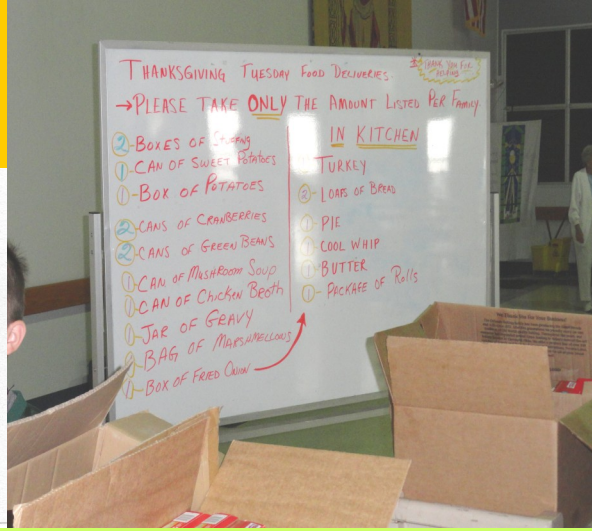 THANKSGIVING TUESDAY FOOD DELIVERIES.
THANK YOU FOR
→PLEASE TAKE ONLY THE AMOUNT LISTED PER FAMILY
2-BOXES OF
1-CAN OF SWEET POTATOES
1-BOX OF POTATOES
2-CANS OF CRANBERRIES
2-CANS OF GREEN BEANS
1-CAN OF MUSHROOM SOUP
1-CAN OF CHICKEN BROTH
1-JAR OF GRAVY
BAG OF MARSHMELLOWS
1-BOX OF FRIED ONION
IN KITCHEN
TURKEY
2-LOAFS OF BREAD
1-PIE
1-COOL WHIP
1-BUTTER
1-PACKAFE OF ROLLS